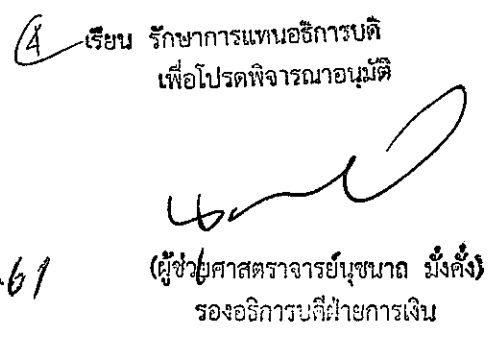 4 เรียน รักษาการแทนอธิการบดี
เพื่อโปรดพิจารณาอนุมัติ
61 (ผู้ช่วยศาสตราจารย์นุชนาถ มั่งคั่ง)
รองอธิการบดีฝ่ายการเงิน